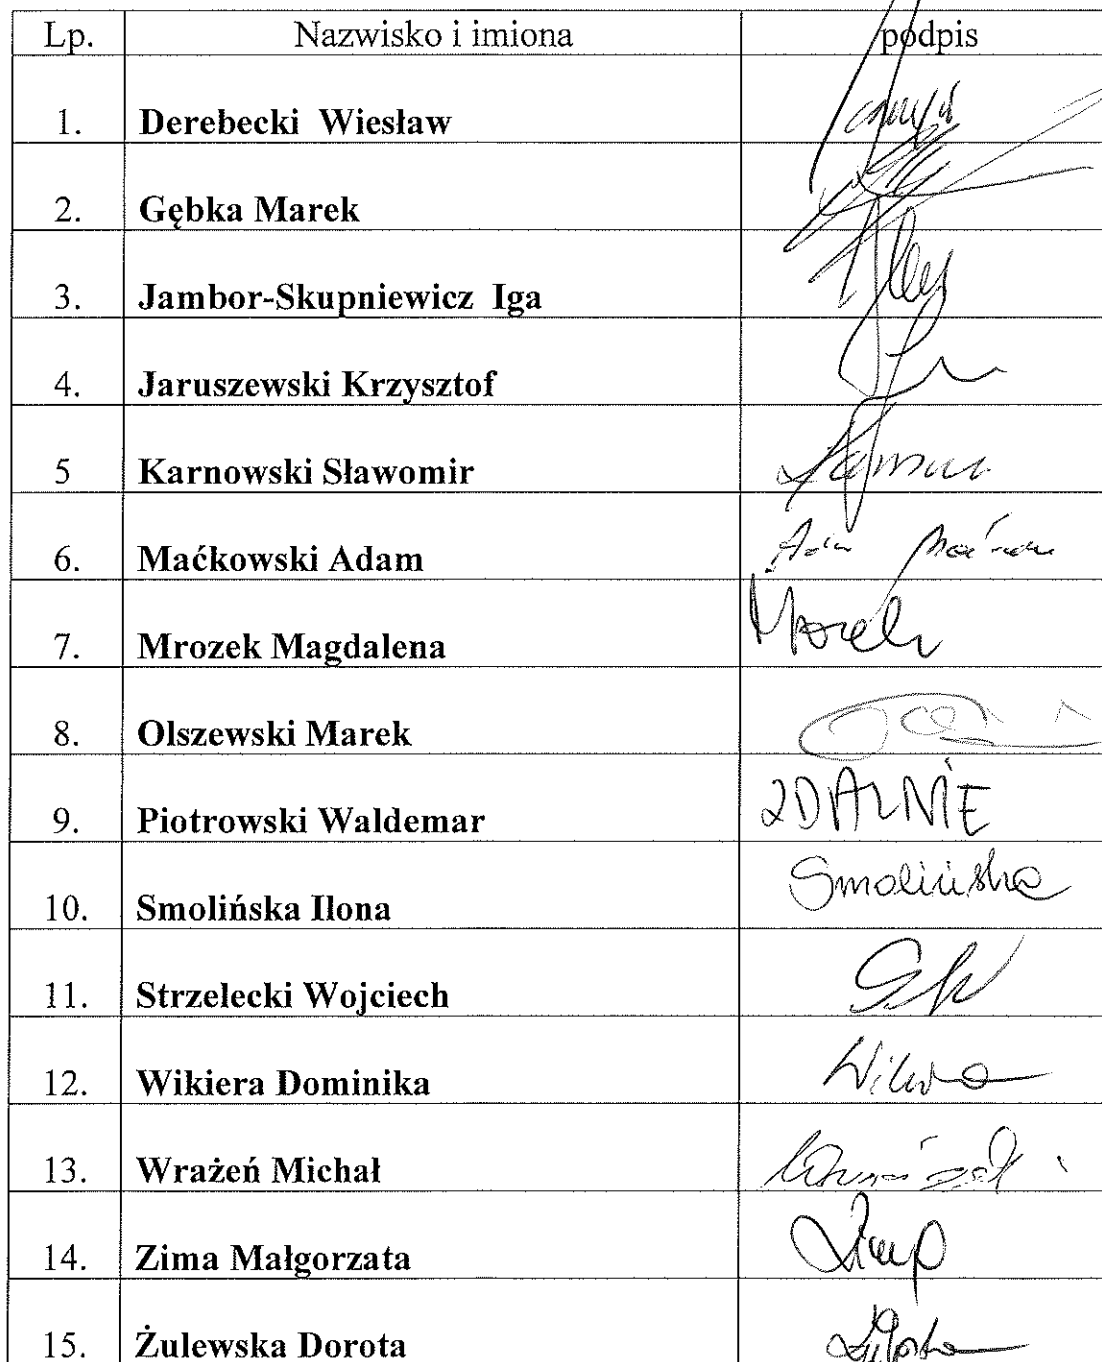 Lp. Nazwisko i imiona podpis
1. Derebecki Wiesław
2. Gębka Marek
3. Jambor-Skupniewicz Iga
4. Jaruszewski Krzysztof
5 Karnowski Sławomir
6. Maćkowski Adam
7. Mrozek Magdalena
8. Olszewski Marek
9. Piotrowski Waldemar ZDALNIE
10. Smolińska Ilona Smolińska
11. Strzelecki Wojciech
12. Wikiera Dominika
13. Wrażeń Michał
14. Zima Małgorzata
15. Żulewska Dorota